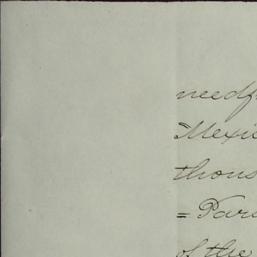 needf
"Mexic
thous
= Par
of the